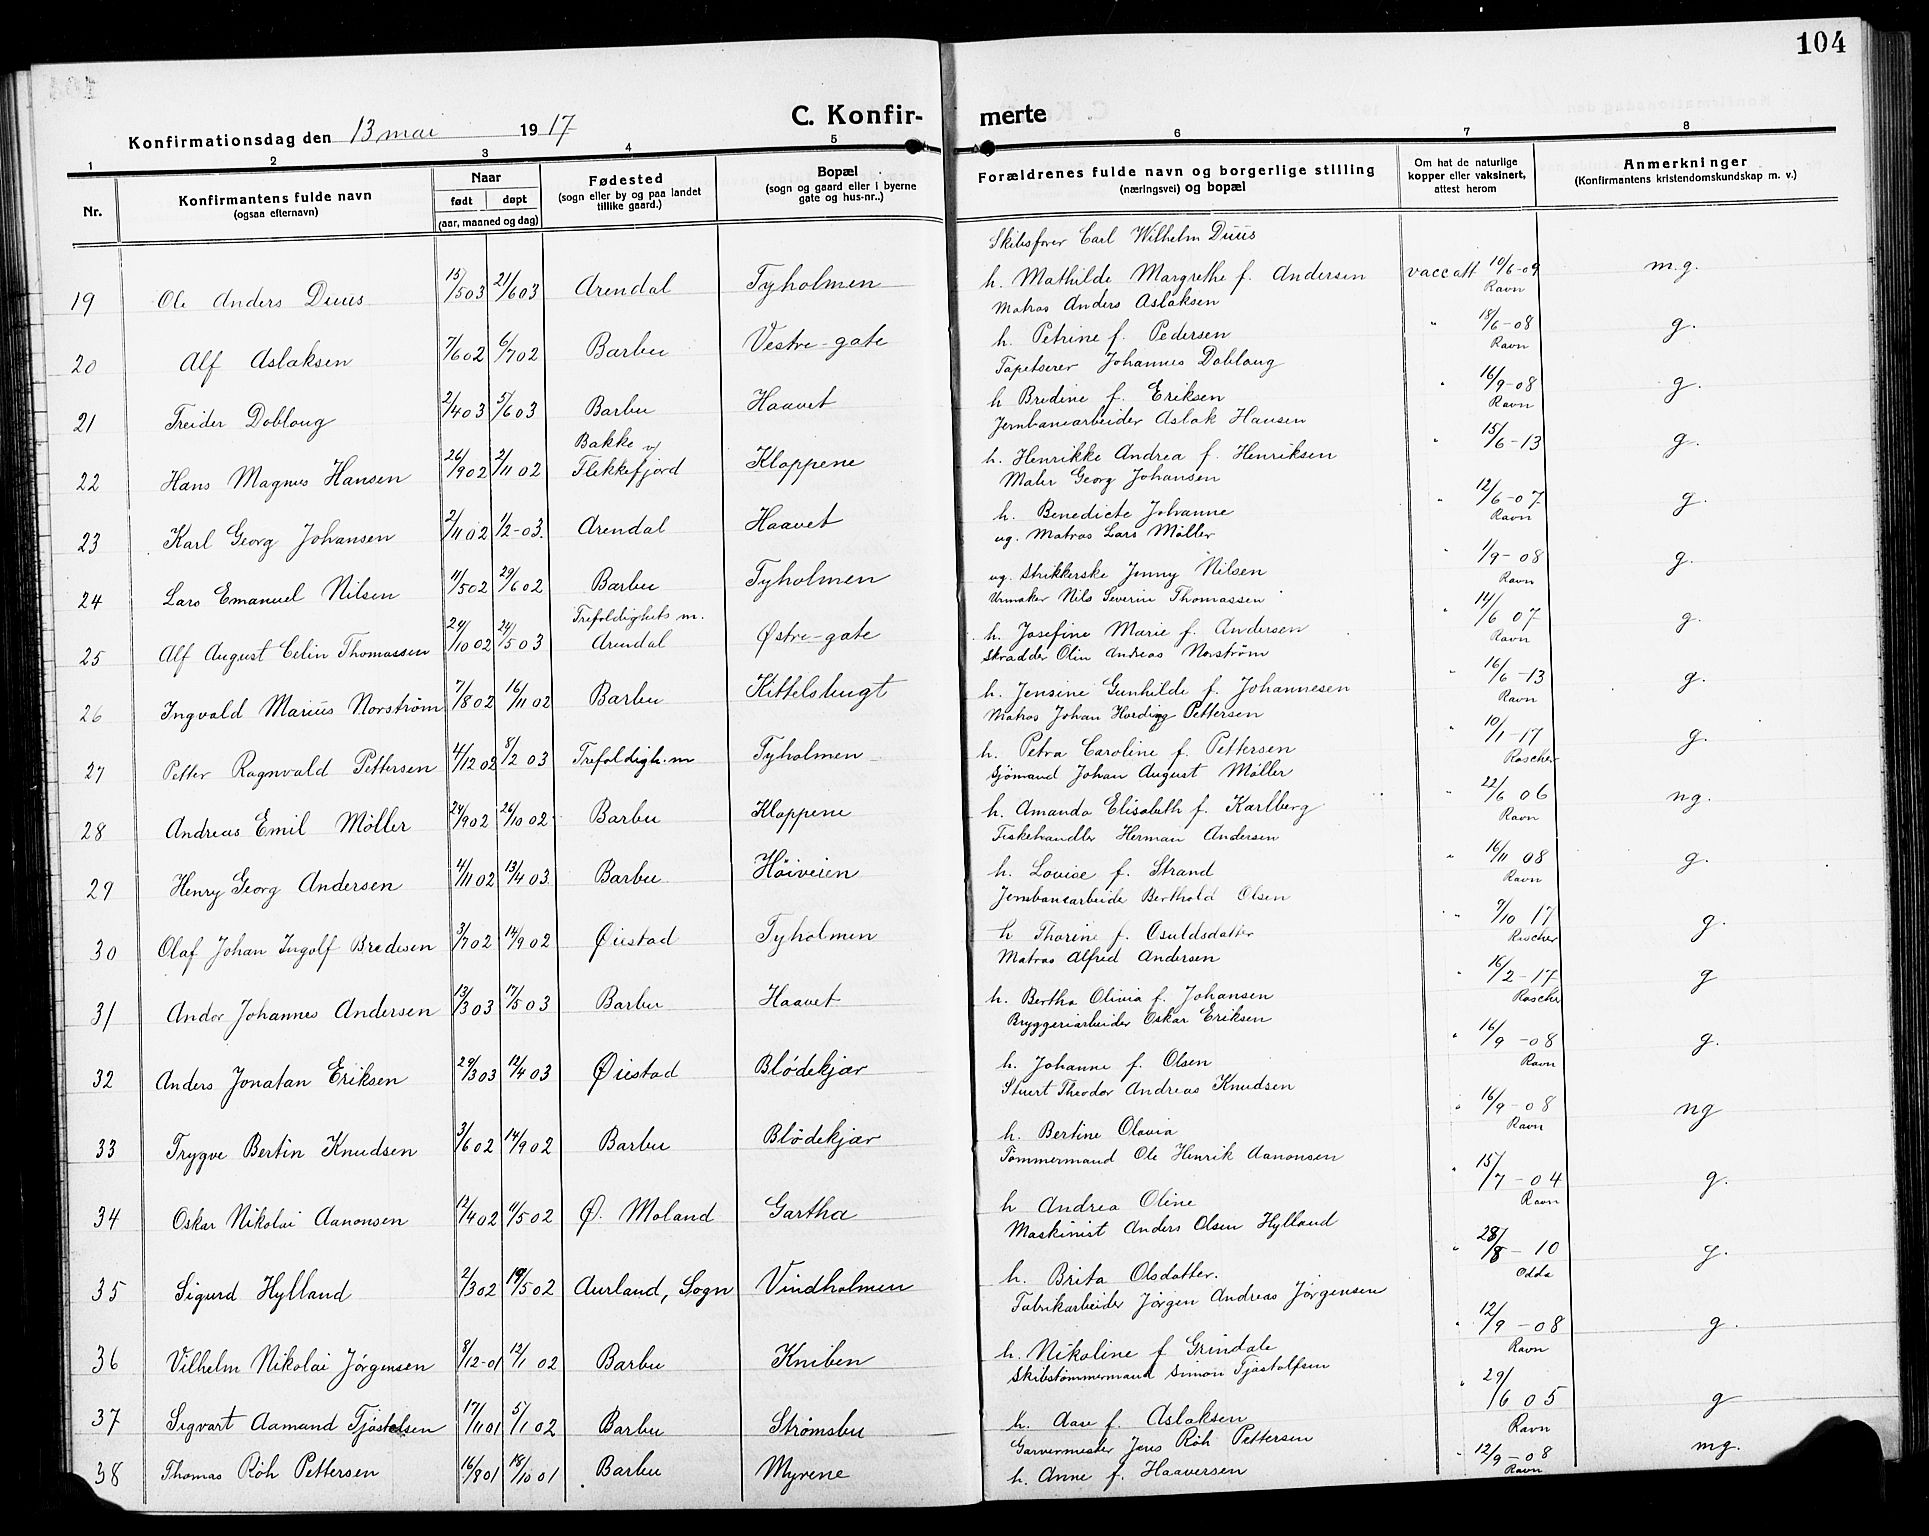 104
C. Konfir-
merte
Konfirmationsdag den 13 mai 1917
1 2 3 4 5 6 7 8
Nr.
Konfirmantens fulde navn
(ogsaa efternavn)
Naar
født døpt
(aar, maaned og dag)
Fødested
(sogn eller by og paa landet
tillike gaard.)
Bopæl
(sogn og gaard eller i byerne
gate og hus-nr..)
Forældrenes fulde navn og borgerlige stilling
(næringsvei) og bopæl
Om hat de naturlige
kopper eller vaksinert,
attest herom
Anmerkninger
(Konfirmantens kristendomskundskap m. v.)
Skibsfører Carl Wilhelm Duus
19 Ole Anders Duus 15/5 03 21/6 03 Arendal Tyholmen h. Mathilde Margrethe f. Andersen vacc att 10/6-09 Ravn m.g.
Matros Anders Aslaksen
20 Alf Aslaksen 7/6 02 6/7 02 Barbu Vestre-gate h. Petrine f. Pedersen " 18/6-08 Ravn g.
Tapetserer Johannes Doblaug
21 Treider Doblaug 2/4 03 5/6 03 Barbu Haavet h Bredine f. Eriksen " 16/9-08 Ravn g.
Jernbanearbeider Aslak Hansen
22 Hans Magnus Hansen 26/9 02 2/11 02 Bakke v/ Flekkefjord Kloppene h. Henrikke Andrea f. Henriksen " 15/6-13 g.
Maler Georg Johansen
23 Karl Georg Johansen 2/11 02 1/2-03. Arendal Haavet h. Benedicte Johanne " 12/6-07 Ravn g.
ug. Matros Lars Møller
24 Lars Emanuel Nilsen 11/5 02 29/6 02 Barbu Tyholmen ug. Strikkerske Jenny Nilsen " 1/9-08 Ravn g.
Urmaker Nils Severin Thomassen
25 Alf August Celin Thomassen 24/10 02 24/5 03 Trefoldighets m. Arendal Østre-gate h. Josefine Marie f. Andersen " 14/6 07 Ravn g.
Skrædder Olin Andreas Norstrøm
26 Ingvald Marius Norstrøm 7/8 02 16/11 02 Barbu Kittelsbugt h. Jensine Gunhilde f. Johannesen " 16/6-13 Ravn g.
Matros Johan Harding Pettersen
27 Petter Ragnvald Pettersen 4/12 02 8/2 03 Trefoldigh. m Tyholmen h. Petra Caroline f. Pettersen " 10/1-17 Roscher g.
Sjømand Johan August Møller
28 Andreas Emil Møller 24/9 02 26/10 02 Barbu Kloppene h. Amanda Elisabeth f. Karlberg " 22/6 06 Ravn ng.
Fiskehandler Herman Andersen
29 Henry Georg Andersen 4/11 02 13/4 03 Barbu Høiveien h. Lovise f. Strand " 16/11 08 Ravn g.
Jernbanearbeide Berthold Olsen
30 Olaf Johan Ingolf Bredesen 3/7 02 14/9 02 Øiestad Tyholmen h Thorine f. Osuldsdatter " 9/10 17 Roscher g.
Matros Alfred Andersen
31 Andor Johannes Andersen 13/3 03 17/5 03 Barbu Haavet h. Bertha Olivia f. Johansen " 16/2-17 Roscher g
Bryggeriarbeider Oskar Eriksen
32 Anders Jonatan Eriksen 29/3 03 12/4 03 Øiestad Blødekjær h. Johanne f. Olsen " 16/9-08 Ravn g.
Stuert Theodor Andreas Knudsen
33 Trygve Bertin Knudsen 3/6 02 14/9 02 Barbu Blødekjær h. Bertine Olavia " 16/9-08 Ravn ng
Tømmermand Ole Henrik Aanonsen
34 Oskar Nikolai Aanonsen 12/4 02 11/5 02 Ø. Moland Gartha h Andrea Oline " 15/7-04 Ravn g.
Maskinist Anders Olsen Hylland
35 Sigurd Hylland 2/3 02 19/5 02 Aurland, Sogn Vindholmen h. Brita Olsdatter. " 28/8-10 Odda g.
Fabrikarbeider Jørgen Andreas Jørgensen
36 Vilhelm Nikolai Jørgensen 8/12-01 12/1 02 Barbu Kniben h. Nikoline f Grindale " 12/9-08 Ravn g.
Skibstømmermand Simon Tjøstolfsen
37 Sigvart Aamand Tjøstolsen 17/11 01 5/1 02 Barbu Strømsbu h. Aase f. Aslaksen " 29/6 05 Ravn g
Garvermester Jens Röh Pettersen
38 Thomas Röh Pettersen 16/8 01 18/10 01 Barbu Myrene h. Anne f. Haaversen " 12/9-08 Ravn mg.